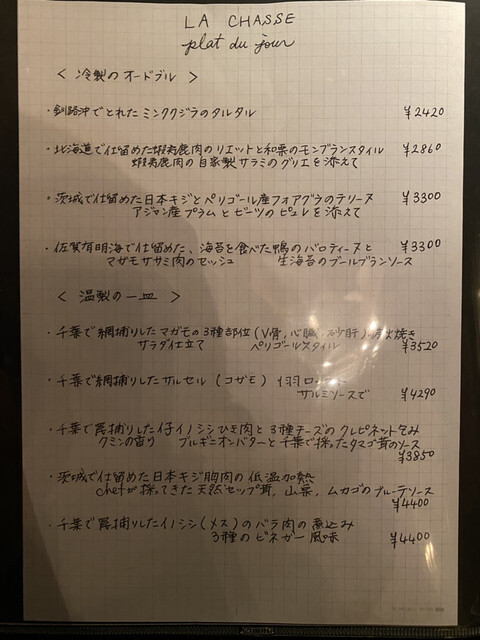 LA CHASSE
plat du jour
< 冷製のオードブル >
・釧路沖でとれたミンククジラのタルタル ¥2420
・北海道で仕留めた蝦夷鹿肉のリエットと和栗のモンブランスタイル ¥2860
蝦夷鹿肉の自家製サラミのグリエを添えて
・茨城で仕留めた日本キジとペリゴール産フォアグラのテリーヌ ¥3300
アジャン産プラムとビーツのピュレを添えて
・佐賀有明海で仕留めた、海苔を食べた鴨のバロティーヌと ¥3300
マガモササミ肉のセッシュ 生海苔のブールブランソース
< 温製の一皿 >
・千葉で網捕りしたマガモの3種部位(V骨,心臓,砂肝)の炭火焼き
サラダ仕立て ペリゴールスタイル ¥3520
・千葉で網捕りしたサルセル(コガモ) 1羽ロ
サルミソースで ¥4290
・千葉で罠捕りした仔イノシシひき肉と3種チーズのクレピネット包み
クミンの香り ブルギニオンバターと千葉で採ったタマゴ茸のソース
¥3850
・茨城で仕留めた日本キジ胸肉の低温加熱
chefが採ってきた天然セップ茸,山栗,ムカゴのブルーテソース
¥4400
・千葉で罠捕りしたイノシシ(メス)のバラ肉の煮込み
3種のビネガー風味 ¥4400